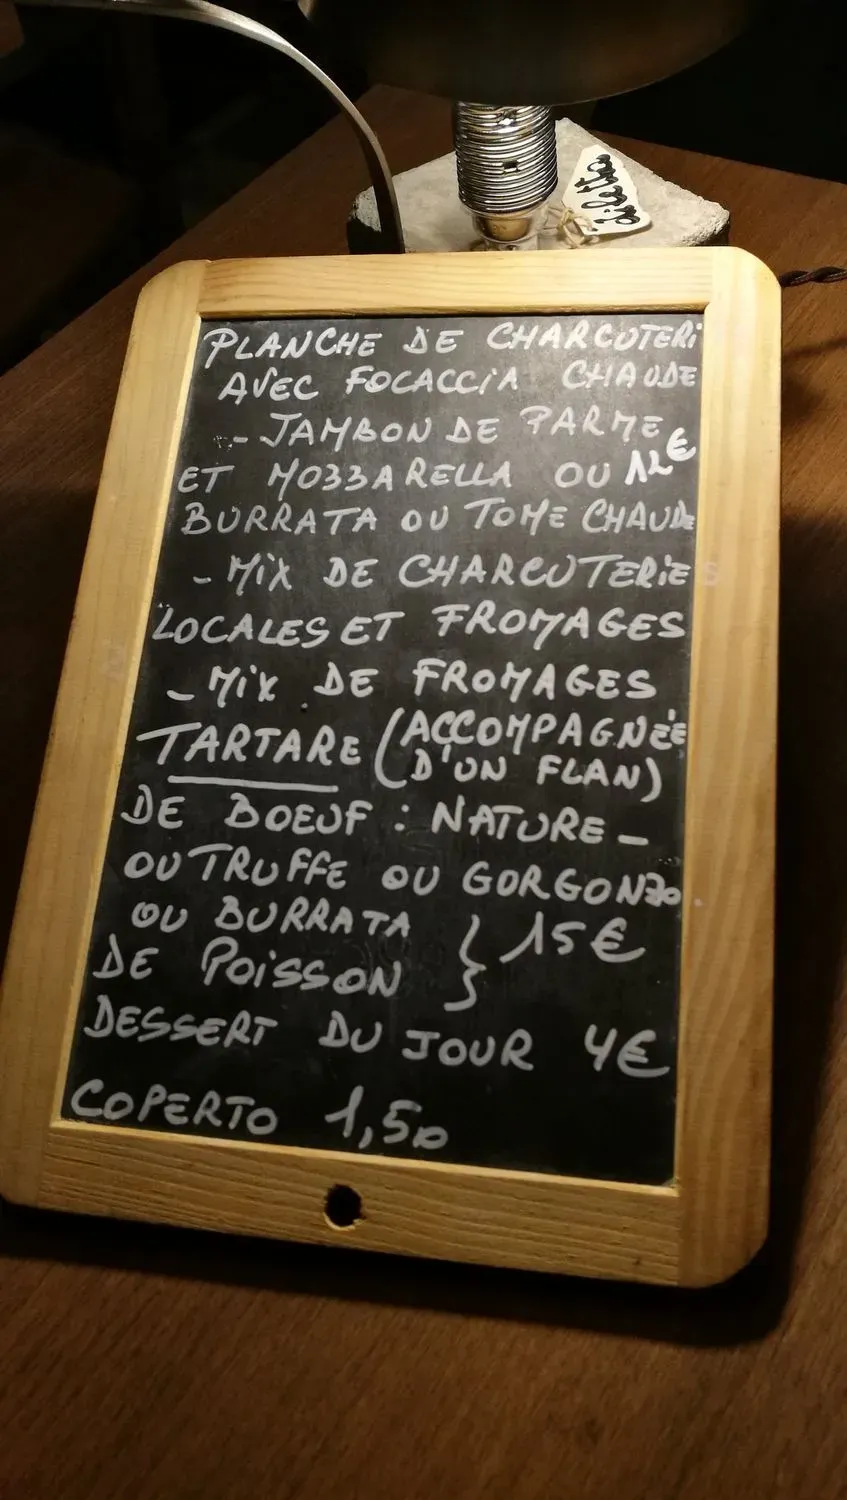 diletto
PLANCHE DE CHARCUTERI
AVEC FOCACCIA CHAUDE
- JAMBON DE PARME
ET MOZZARELLA OU 12€
BURRATA OU TOME CHAUDE
- MIX DE CHARCUTERIES
LOCALES ET FROMAGES
- MIX DE FROMAGES
TARTARE (ACCOMPAGNÉE
D'UN FLAN)
DE BOEUF : NATURE -
OU TRUFFE OU GORGONZO
OU BURRATA } 15€
DE POISSON
DESSERT DU JOUR 4€
COPERTO 1,50